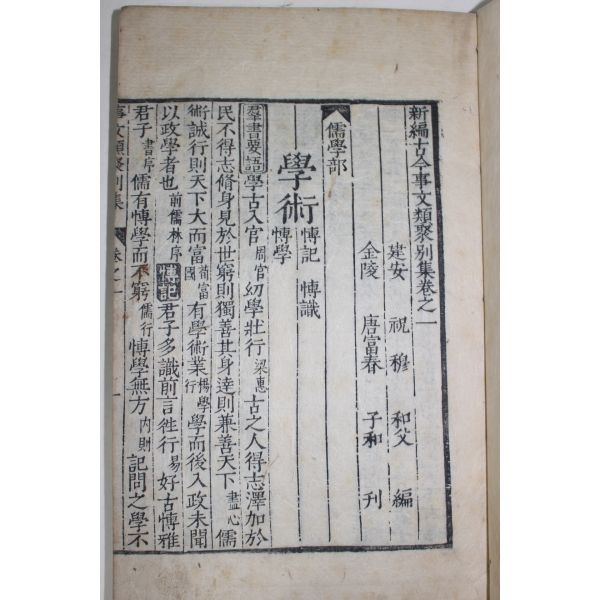 新編古今事文類聚別集卷之一
建安 祝穆 和父 編
金陵 唐富春 子和 刊
儒學部
學術 愽記 愽識
愽學
羣書要語學古入官周官幼學壯行梁惠古之人得志澤加於
民不得志脩身見於世窮則獨善其身達則兼善天下盡心儒
術誠行則天下大而富荀富國有學術業楊學行學而後入政未聞
以政學者也前儒林序愽記君子多識前言徃行易好古愽雅
君子書序儒有愽學而不窮儒行愽學無方內則記問之學不
事文類聚別集 卷之一